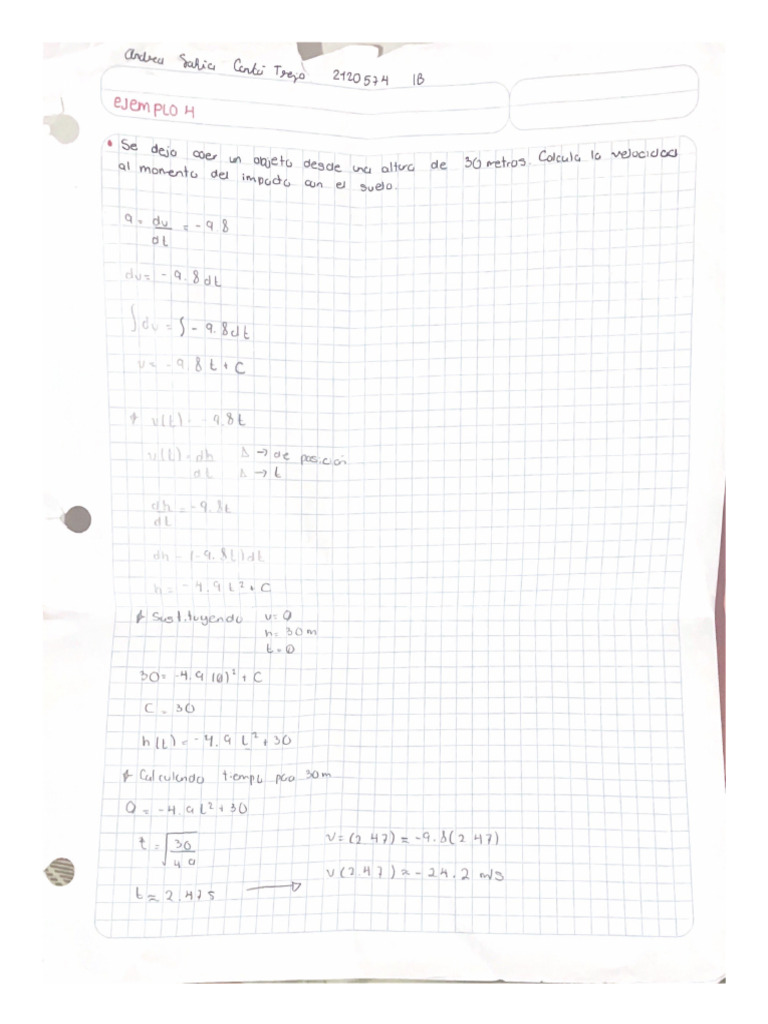 Andrea 2120574 1B
EJEMPLO 4
• Se deja caer un objeto desde una altura de 30 metros. Calcula la velocidad
al momento del impacto con el suelo.
a = dv/dt = -9.8
dv = -9.8dt
∫dv = ∫-9.8dt
v = -9.8t + C
v(t) = -9.8t
v(t) = dh/dt Δ → de posición
Δ → t
dh/dt = -9.8t
dh = (-9.8t)dt
h = -4.9t² + C
Sustituyendo v = 0
h = 30m
t = 0
30 = -4.9(0)² + C
C = 30
h(t) = -4.9t² + 30
Calculando tiempo para 30m
0 = -4.9t² + 30
t = √30/4.9 v = (2.47) = -9.8(2.47)
t ≈ 2.47s → v(2.47) ≈ -24.2 m/s